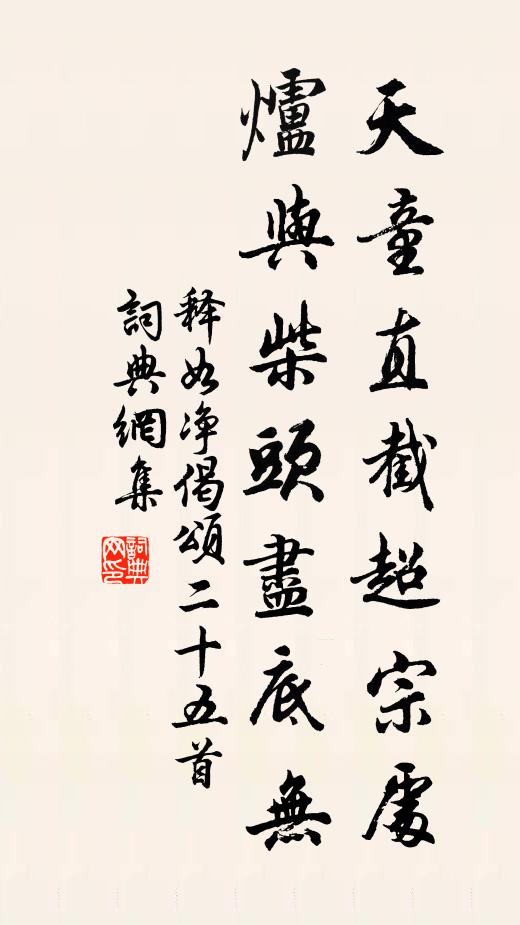 天童直截超宗處
爐與柴頭盡底無
释如净偈頌二十五首
詞典網集
詞典網印